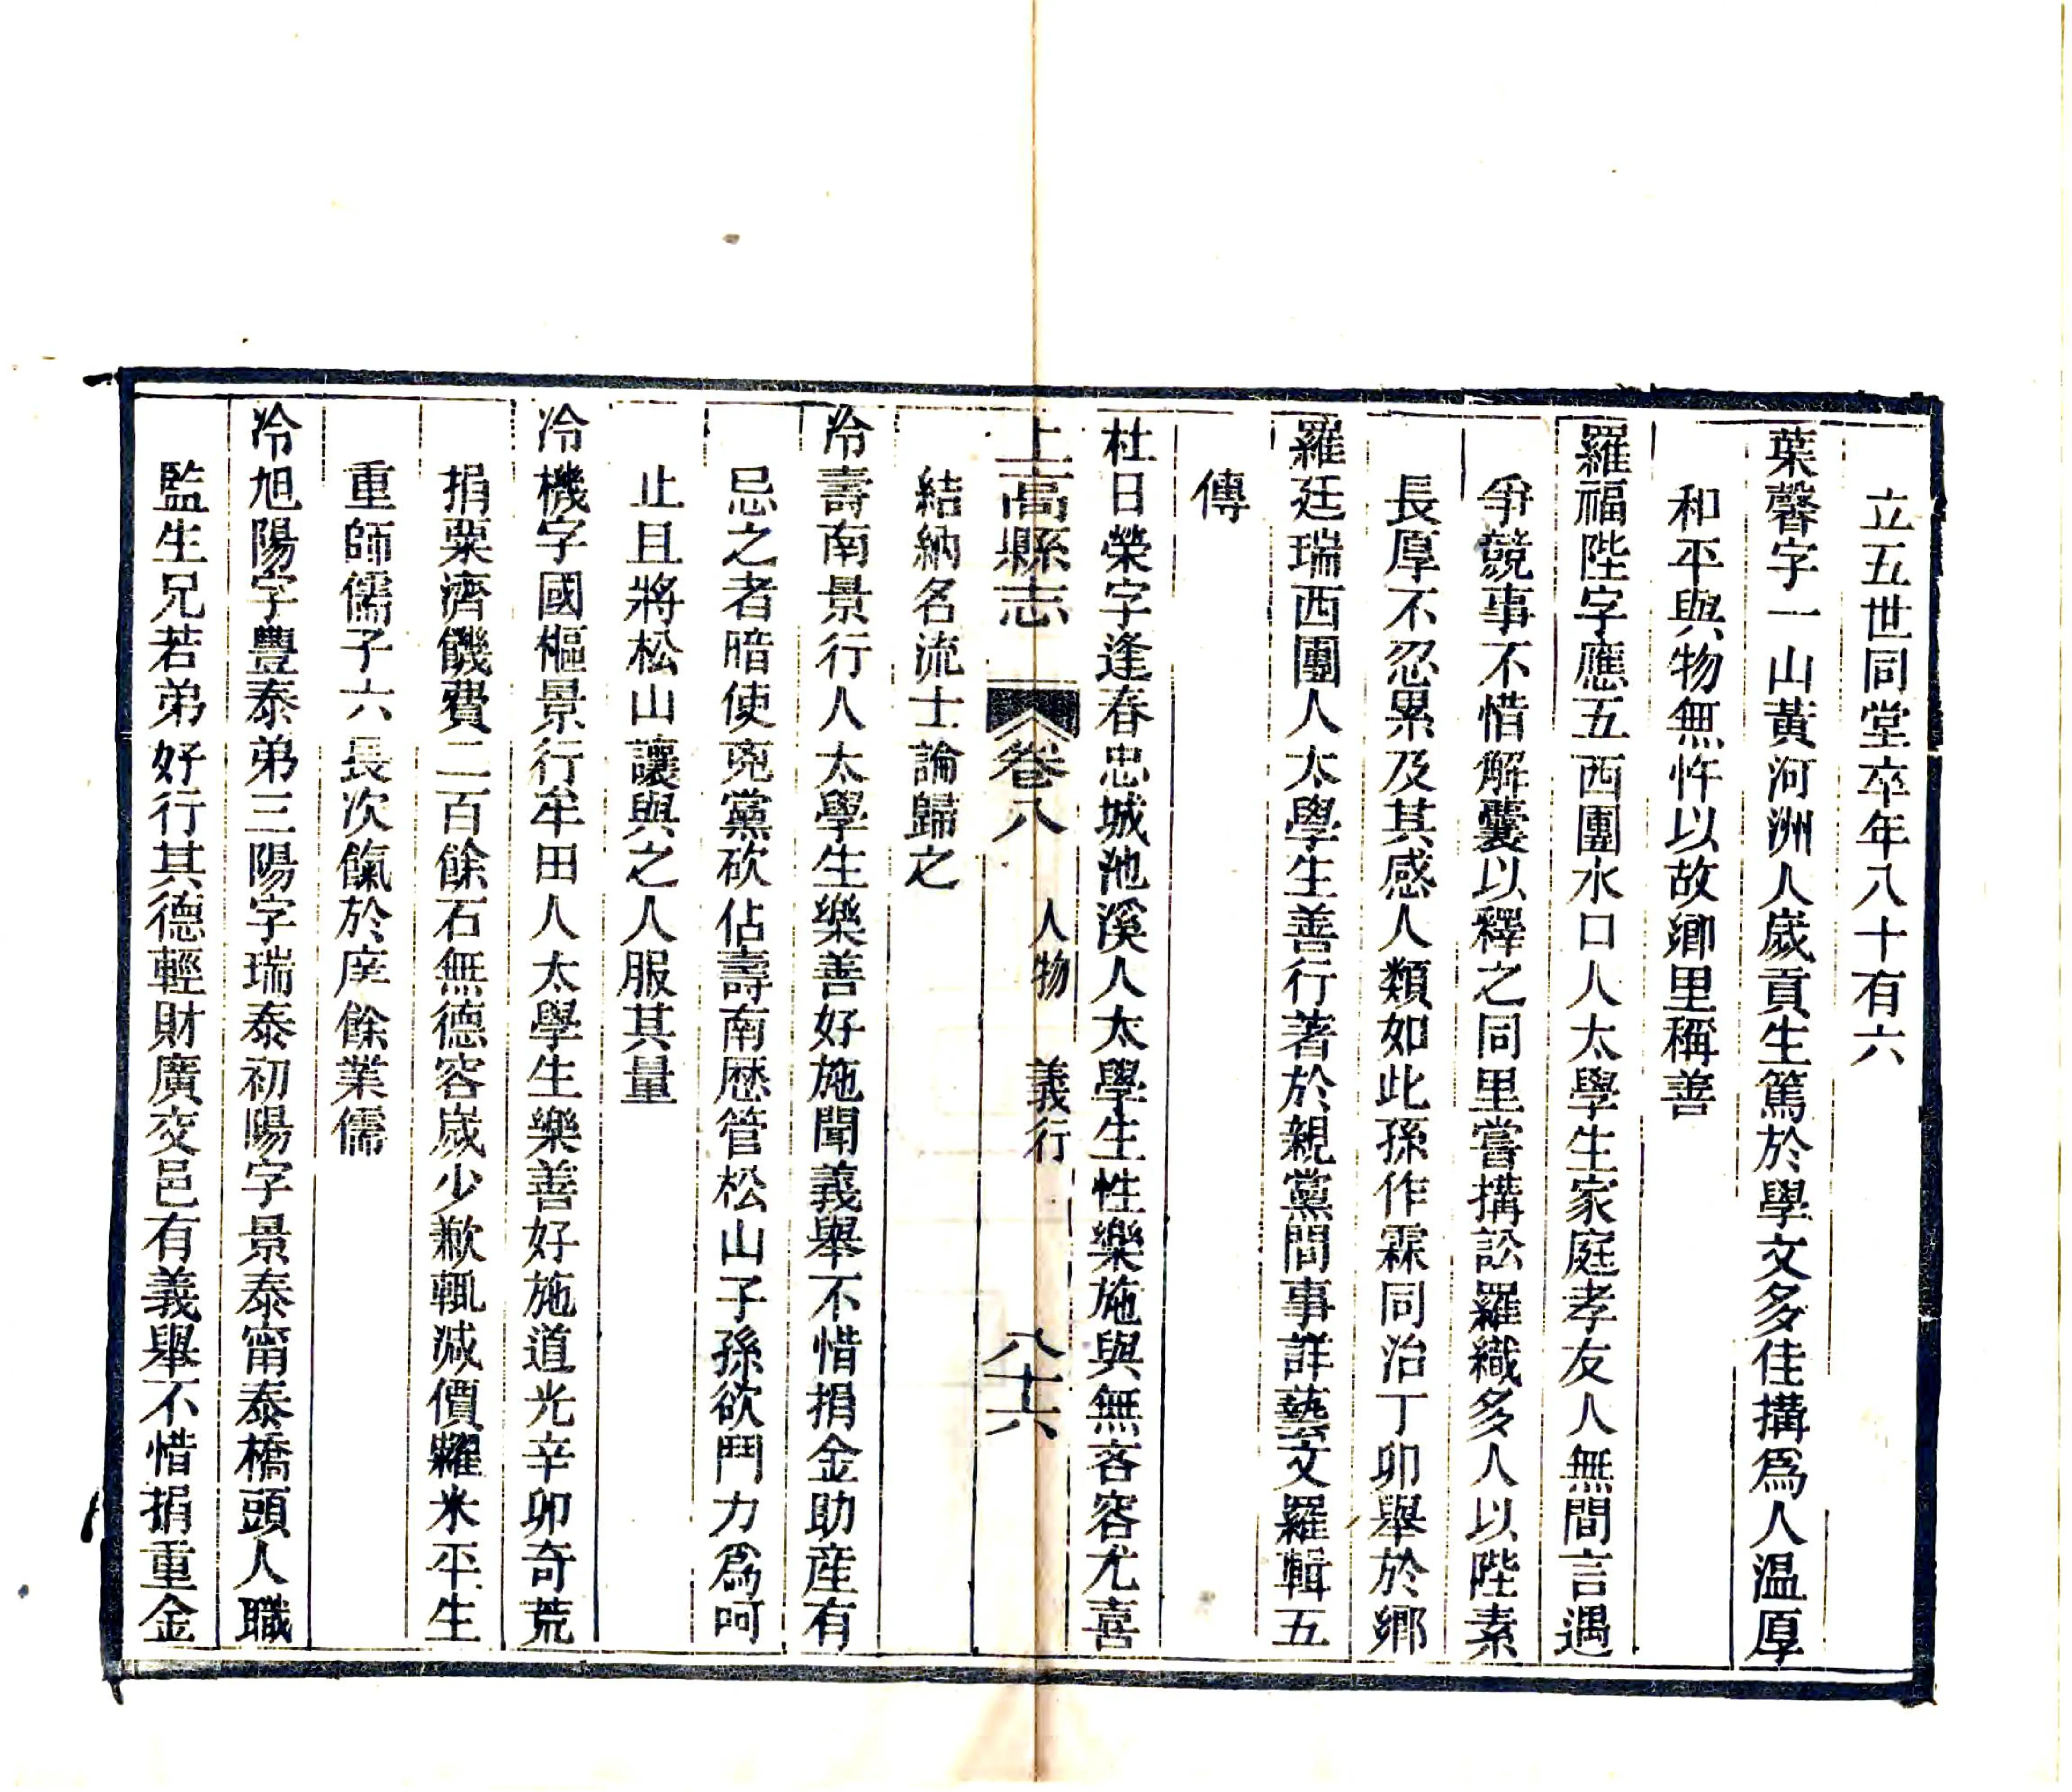 立五世同堂卒年八十有六
葉馨字一山黃河洲人歲貢生篤於學文多佳搆爲人温厚
和平與物無忤以故鄉里稱善
羅福陛字應五西團水口人太學生家庭孝友人無間言遇
爭競事不惜解囊以釋之同里嘗搆訟羅織多人以陛素
長厚不忍累及其感人類如此孫作霖同治丁卯舉於鄉
羅廷瑞西團人太學生善行著於親黨間事詳藝文羅輯五
傳
杜日榮字逢春忠城池溪人太學生性樂施與無吝容尤喜
上高縣志 卷八 人物 義行 八十六
結納名流士論歸之
冷壽南景行人太學生樂善好施聞義舉不惜捐金助產有
忌之者暗使兇黨砍佔壽南歷管松山子孫欲鬥力爲呵
止且將松山讓與之人服其量
冷機字國樞景行牟田人太學生樂善好施道光辛卯奇荒
捐粟濟饑費二百餘石無德容歲少歉輒減價糶米平生
重師儒子六長次餼於庠餘業儒
冷旭陽字豐泰弟三陽字瑞泰初陽字景泰甯泰橋頭人職
監生兄若弟好行其德輕財廣交邑有義舉不惜捐重金